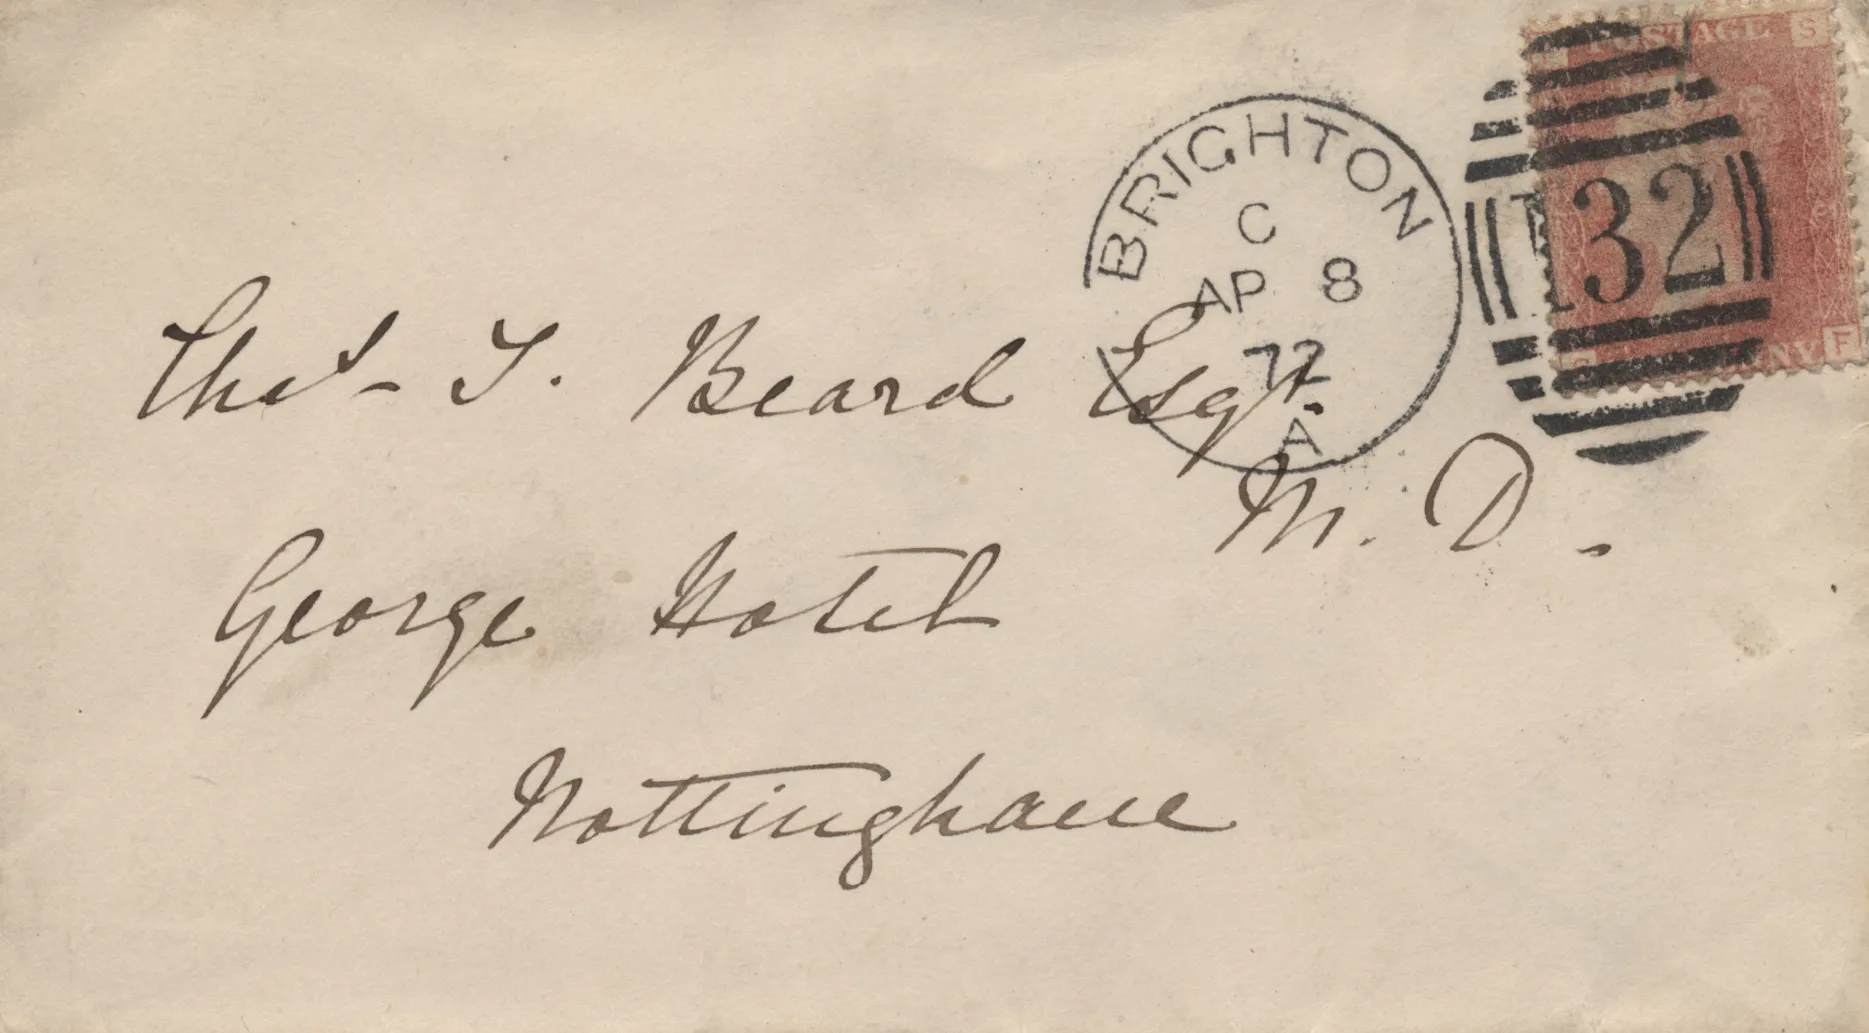 POSTAGE S
BRIGHTON
C
AP 8
72
A
132
F
Thos. T. Beard Esqr.
M. D.
George Hotel
Nottingham